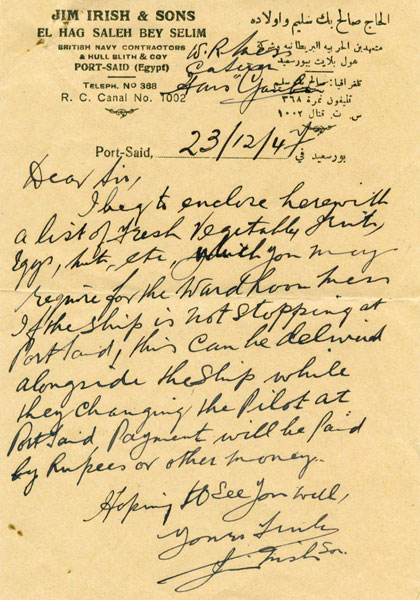 JIM IRISH & SONS
EL HAG SALEH BEY SELIM
BRITISH NAVY CONTRACTORS
& HULL BLITH & COY
PORT-SAID (Egypt)
TELEPH. No 368
R. C. Canal No. 1002
الحاج صالح بك سليم واولاده
متعهدين الحربيه البريطانيه وشركة
هول بلايت ببورسعيد
تلغرافيا: صالح بك سليم
تليفون نمرة ٣٦٨
س. ت قنال ١٠٠٢
W. R. Mess
Port-Said, 23/12/47 بورسعيد في
Dear Sir,
I beg to enclose herewith
a list of Fresh Vegetably, fruit,
Eggs, nuts, etc, which you may
require for the Wardroom mess
If the ship is not stopping at
Port Said, this can be delivind
alongside the ship while
they changing the Pilot at
Port Said Payment will be paid
by Rupees or other money.
Hoping to see you well,
Yours
J. Irish Son.